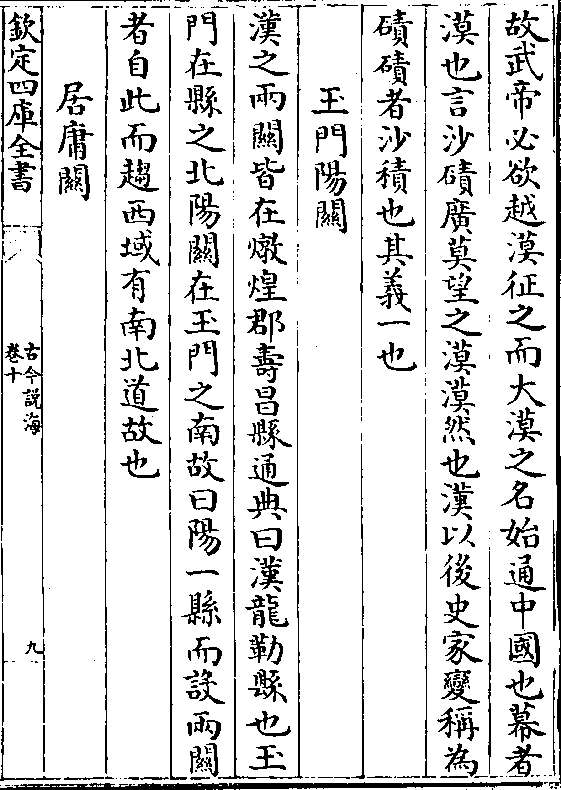 故武帝必欲越漠征之而大漠之名始通中國也幕者
漠也言沙磧廣莫望之漠漠然也漢以後史家變稱為
磧磧者沙積也其義一也
玉門陽關
漢之兩關皆在燉煌郡壽昌縣通典曰漢龍勒縣也玉
門在縣之北陽關在玉門之南故曰陽一縣而設兩關
者自此而趨西域有南北道故也
居庸關
欽定四庫全書
古今說海
卷十
九